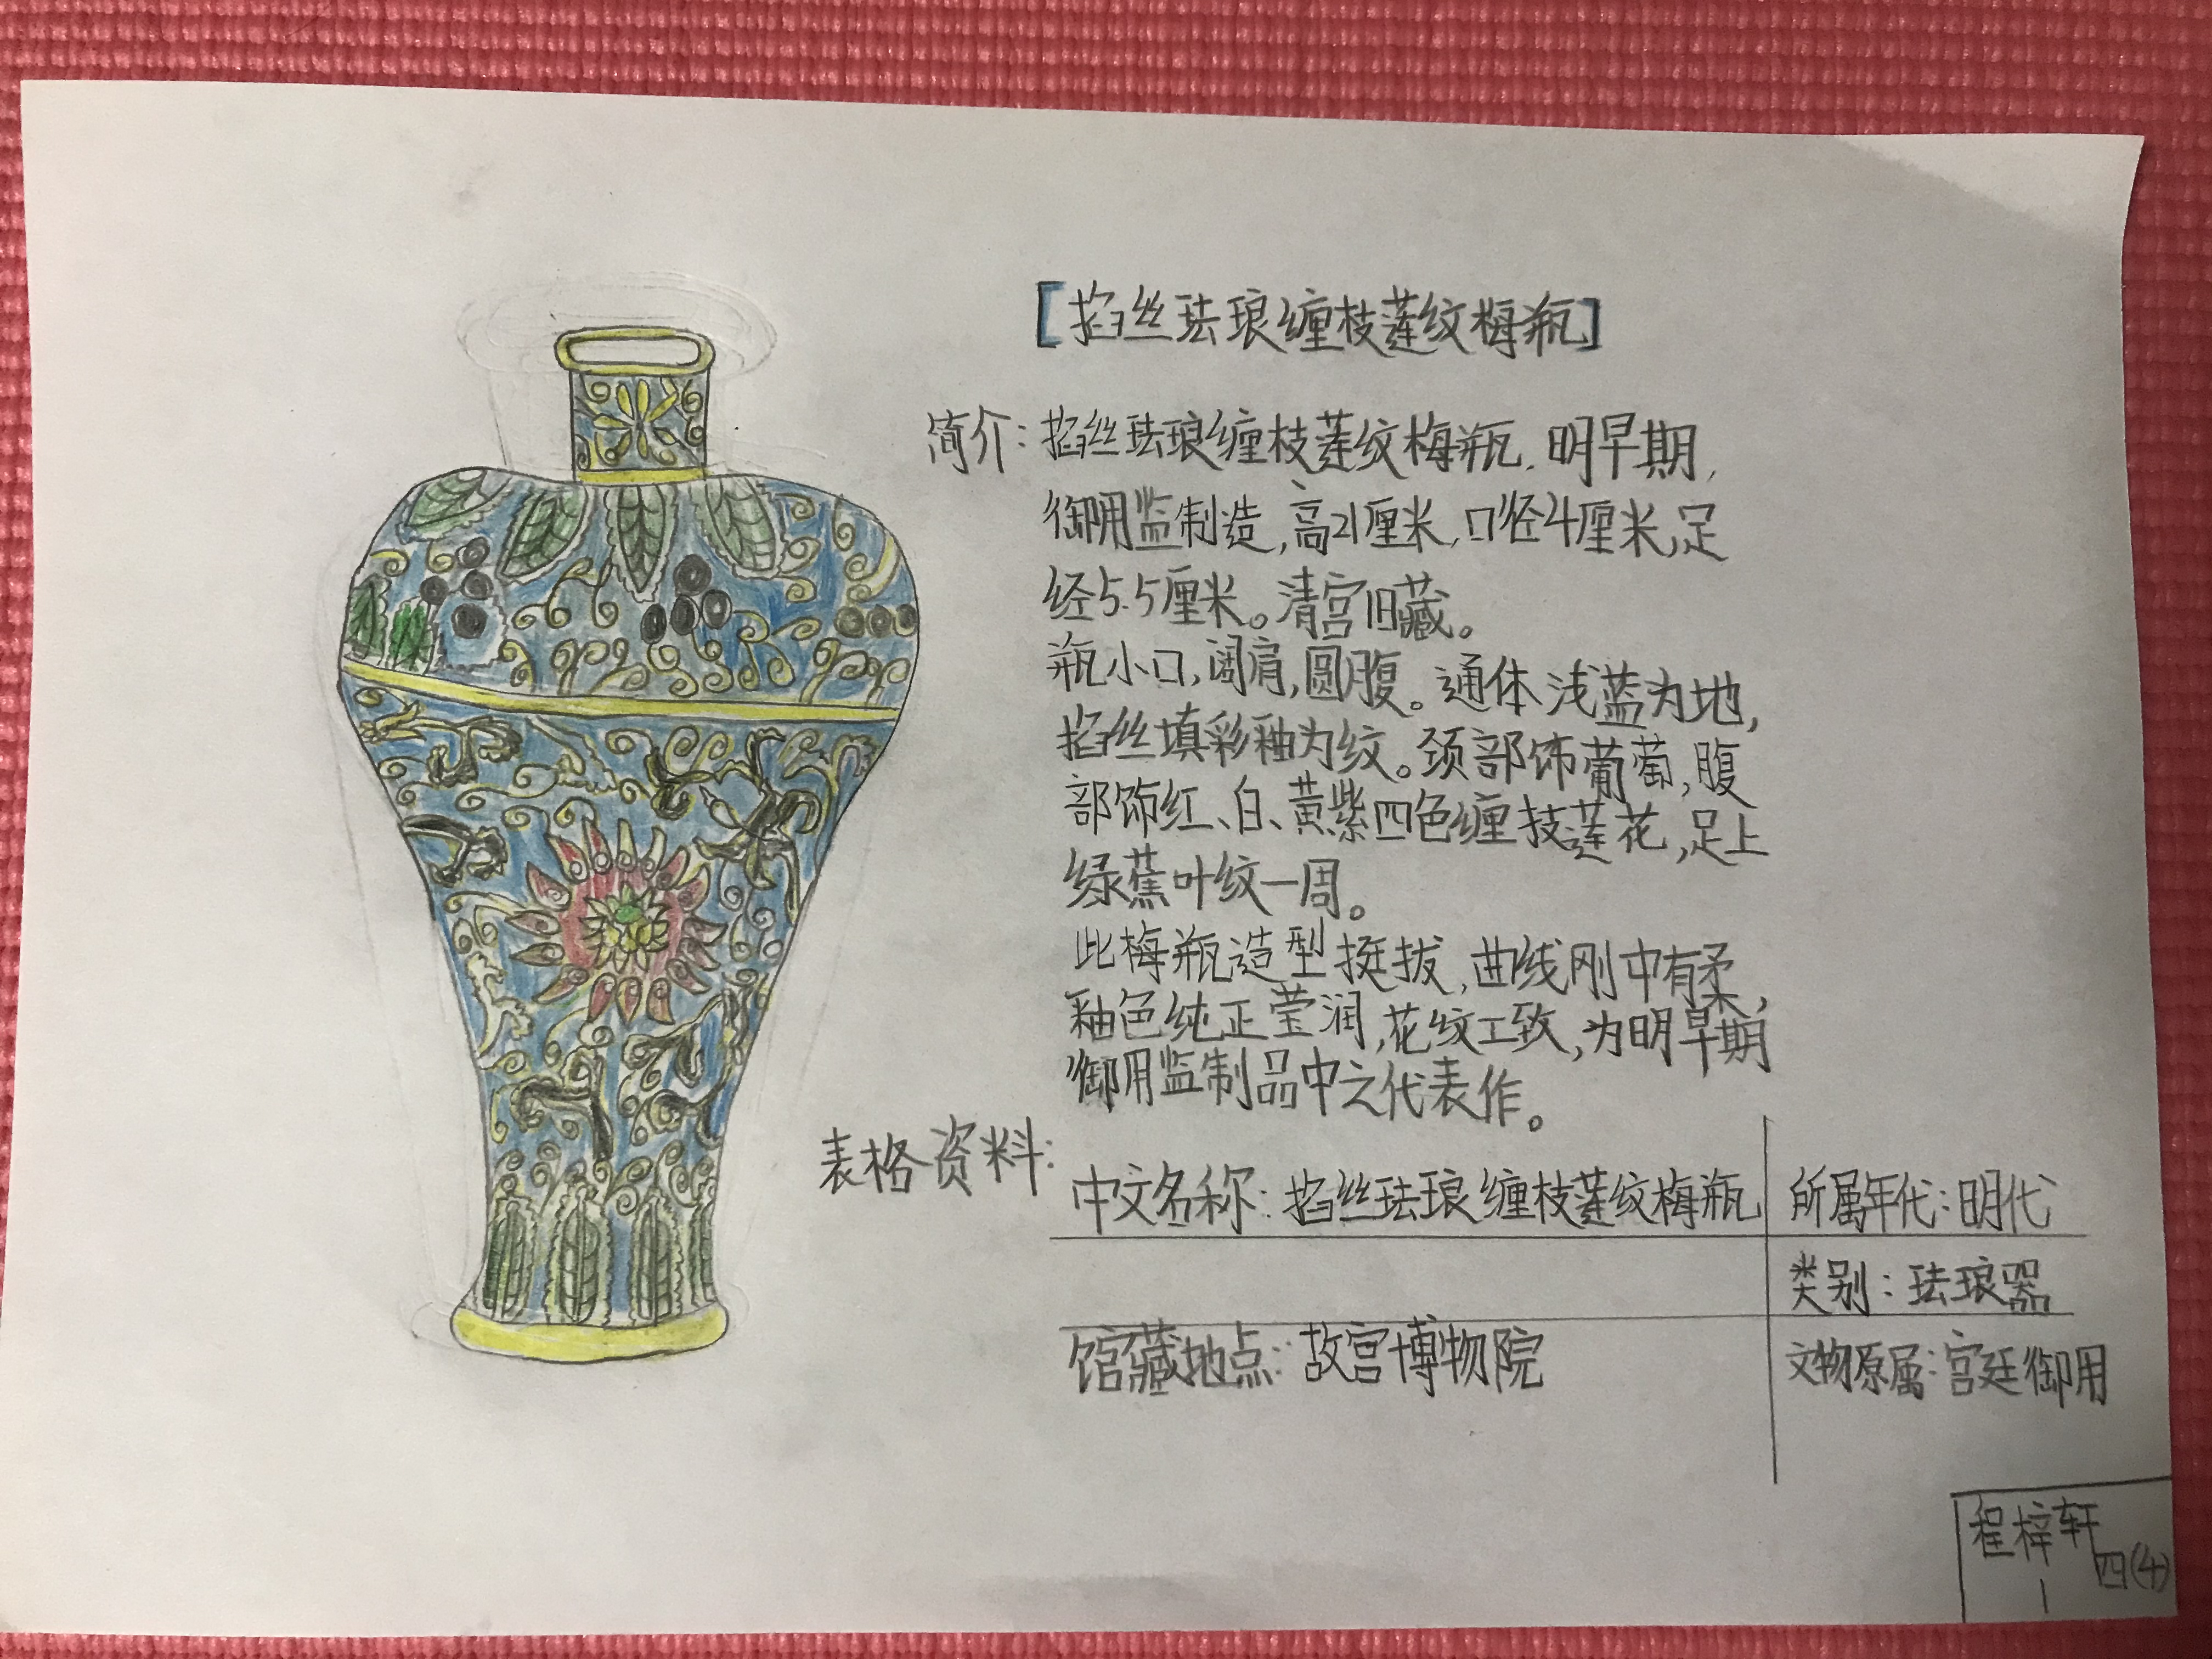 [掐丝珐琅缠枝莲纹梅瓶]
简介:掐丝珐琅缠枝莲纹梅瓶,明早期,
御用监制造,高21厘米,口径4厘米,足
经5.5厘米。清宫旧藏。
瓶小口,阔肩,圆腹。通体浅蓝为地,
掐丝填彩釉为纹。颈部饰葡萄,腹
部饰红、白、黄紫四色缠技莲花,足上
绿蕉叶纹一周。
此梅瓶造型挺拔,曲线刚中有柔,
釉色纯正莹润,花纹工致,为明早期
御用监制品中之代表作。
表格资料:
中文名称:掐丝珐琅缠枝莲纹梅瓶 所属年代:明代
类别:珐琅器
馆藏地点:故宫博物院 文物原属:宫廷御用
程梓轩
四(4)